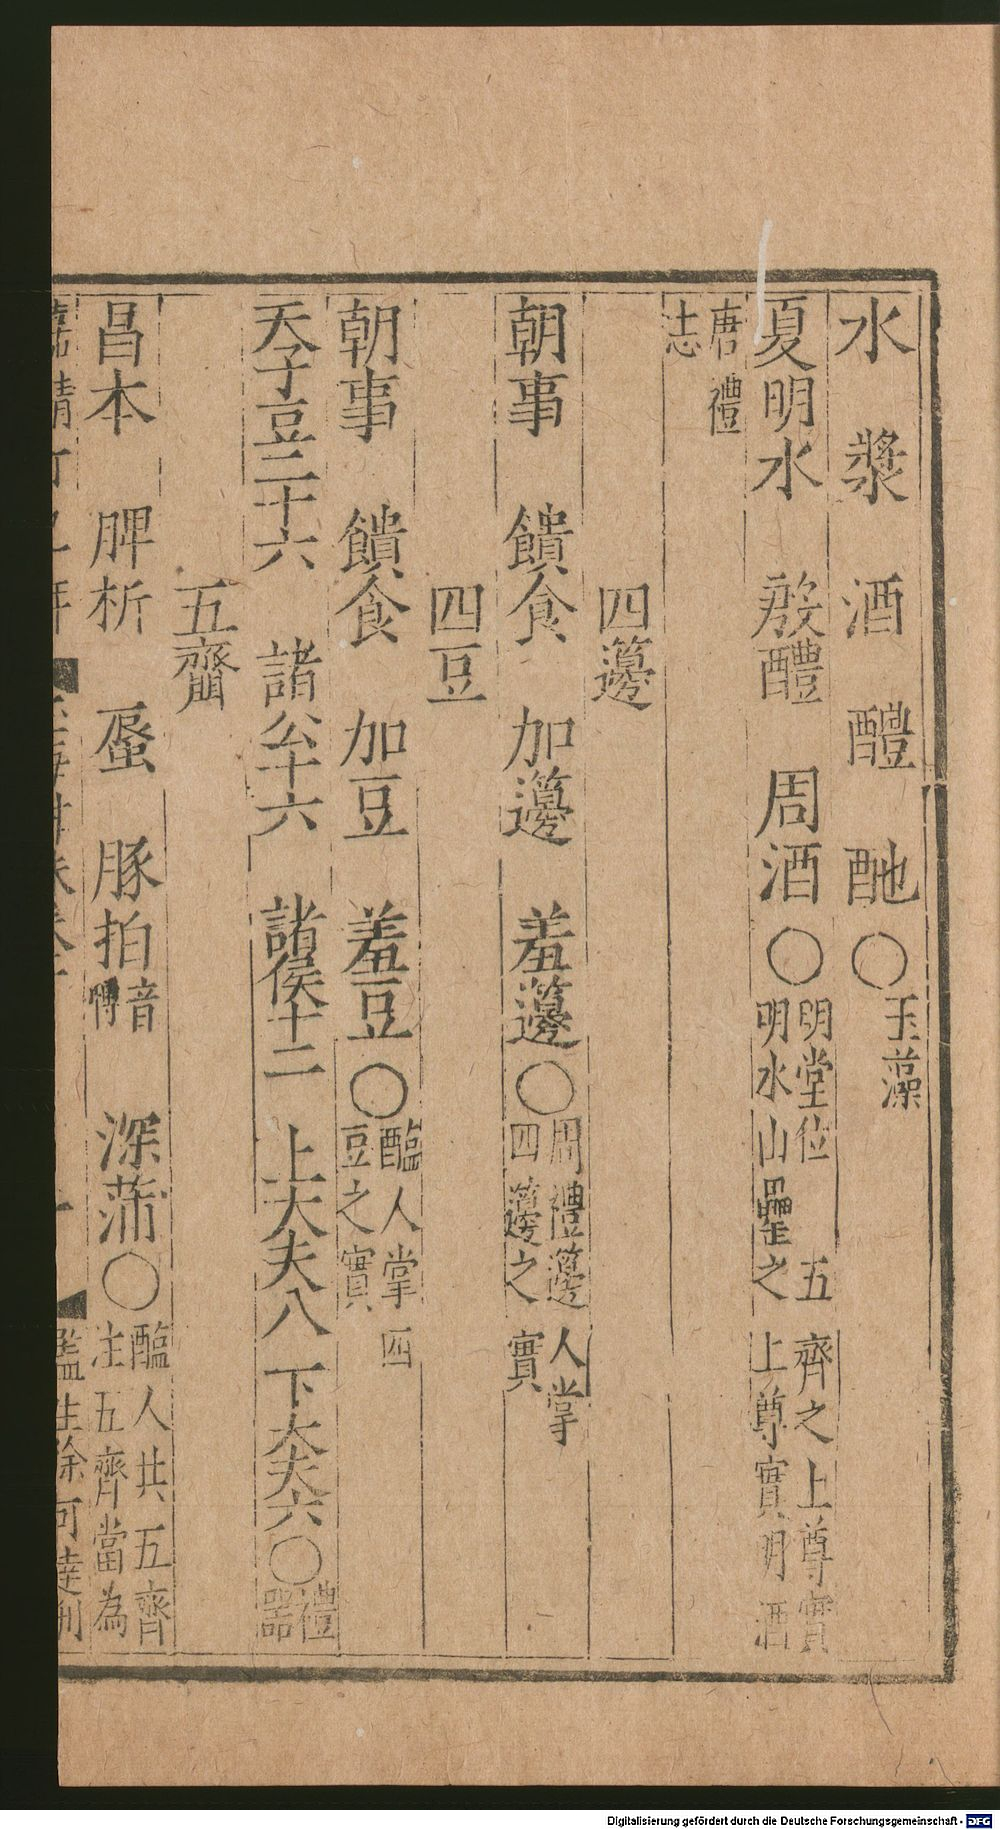 水 漿 酒 醴 酏〇玉藻
夏明水 殷醴 周酒〇明堂位 五齊之上尊實
明水山罍之上尊實明酒
唐禮
志
四籩
朝事 饋食 加籩 羞籩〇周禮籩人掌
四籩之實
四豆
朝事 饋食 加豆 羞豆〇醢人掌四
豆之實
天子豆二十六 諸公十六 諸侯十二 上大夫八 下大夫六〇禮
器
五齊
昌本 脾析 蜃 豚拍音
膊 深蒲〇醢人共五齊
注五齊當為
嘉靖丁巳年
監生徐可達刊
Digitalisierung gefördert durch die Deutsche Forschungsgemeinschaft - DFG